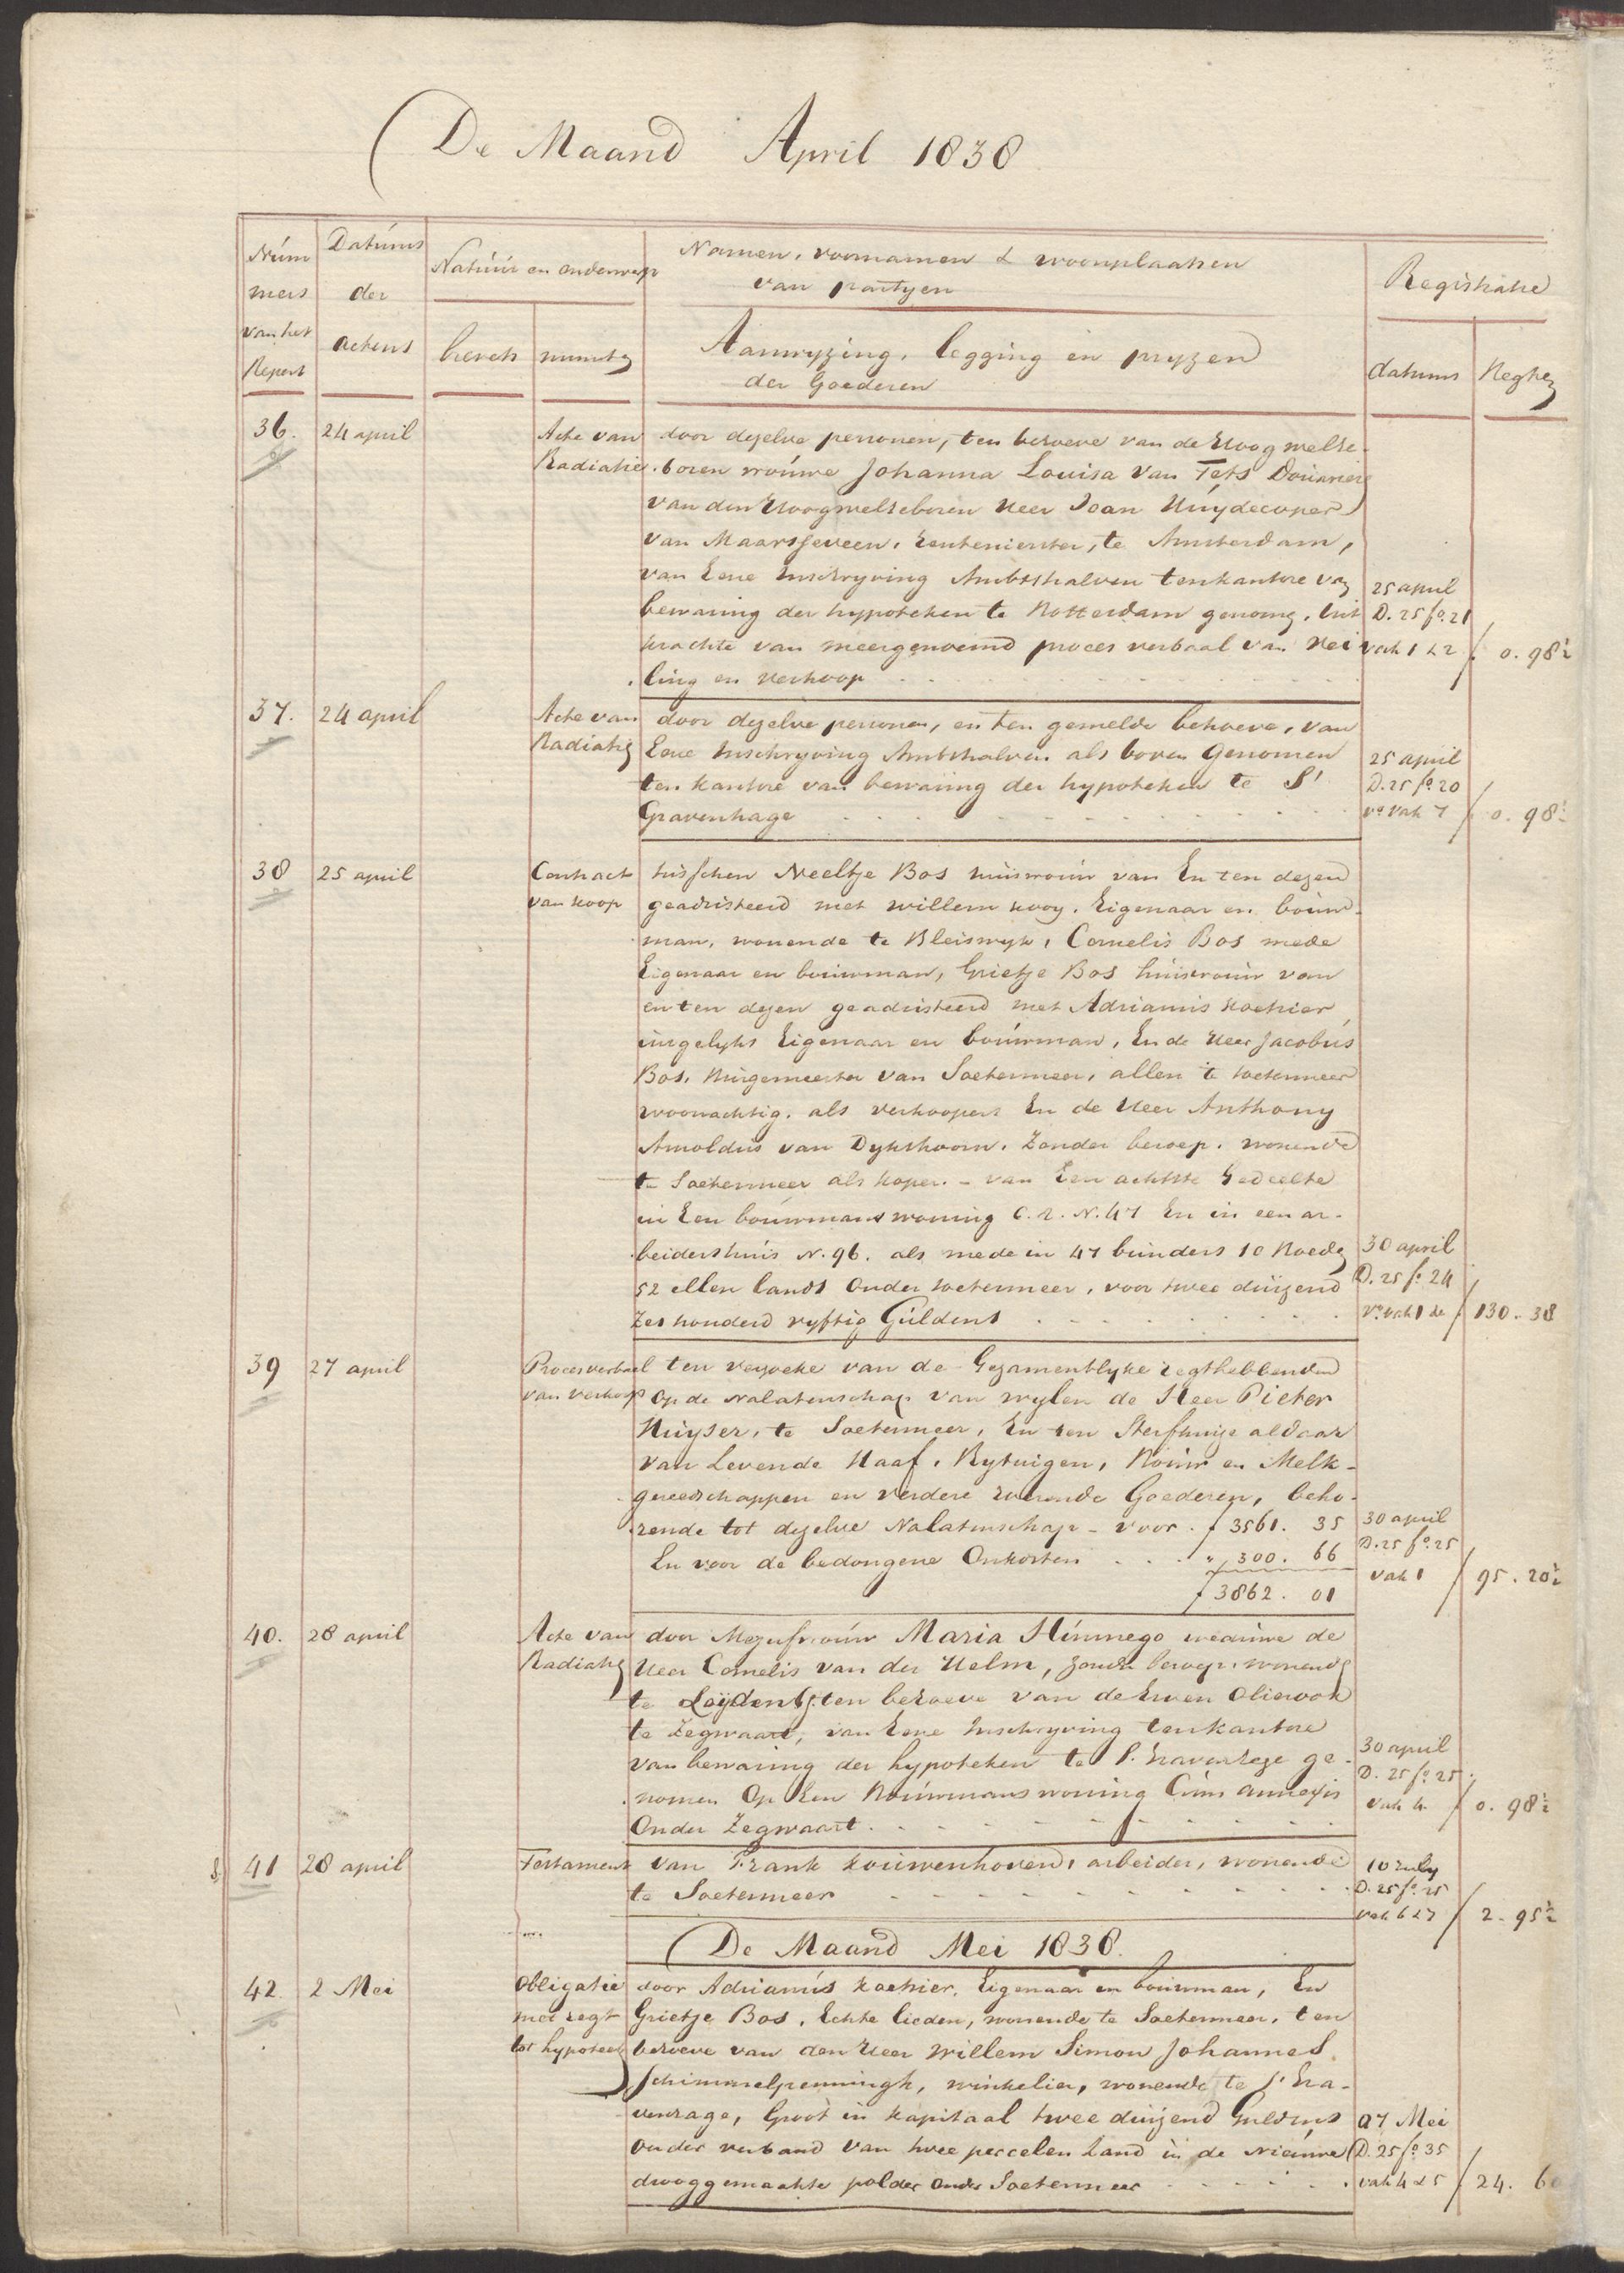 De Maand April 1838
Num
mers
van het
Repert
Datums
der
actens
Natuur en onderwerp
brevets
minuten
Namen, voornamen & woonplaatsen
van partyen
Aanwyzing, legging en pryzen
der Goederen
Registratie
datums
Regten
36.
24 april
Acte van
Radiatie
door dezelve personen, ten behoeve van de Hoog welge-
boren vrouwe Johanna Louisa van Tets Douairiere
van den Hoogwelgeboren Heer Joan Huydecoper
van Maarsseveen, rentenierster, te Amsterdam,
van Eene Inschryving Ambtshalven ten kantore van
bewaring der hypoteken te Rotterdam genomen, uit
krachte van meergenoemd proces verbaal van Vei
ling en Verkoop
25 april
D. 25 fo. 21
vak 1 & 2
0. 98½
37.
24 april
Acte van
Radiatie
door dezelve personen, en ten gemelde behoeve, van
Eene Inschryving Ambtshalven als boven Genomen
ten kantore van bewaring der hypoteken te S'
Gravenhage
25 april
D. 25 fo. 20
vo vak 7
0. 98½
38
25 april
Contract
van koop
tusschen Neeltje Bos huisvrouw van En ten dezen
geadsisteerd met Willem Kooy, Eigenaar en bouw-
man, wonende te Bleiswyk, Cornelis Bos mede
Eigenaar en bouwman, Grietje Bos huisvrouw van
en ten dezen geadsisteerd met Adrianus Koehier,
insgelyks Eigenaar en bouwman, En de Heer Jacobus
Bos, Burgemeester van Soetermeer, allen te Soetermeer
woonachtig, als verkoopers En de Heer Anthony
Arnoldus van Dykshoorn, Zonder beroep, wonende
te Soetermeer als koper. - van Een achtste Gedeelte
in Een bouwmans woning C. 2. N. 47 En in een ar-
beidershuis N. 96. als mede in 47 bunders 10 Roeden
52 ellen lands Onder Soetermeer, voor twee duizend
Zes honderd vyftig Guldens
30 april
D. 25 fo. 24
vo. vak 1 &c
130. 38
39
27 april
Procesverbaal
van verkoop
ten verzoeke van de Gezamentlyke regthebbenden
Op de Nalatenschap van wylen de Heer Pieter
Huyser, te Soetermeer, En ten Sterfhuize aldaar
van Levende Haaf, Rytuigen, Bouw en Melk-
gereedschappen en verdere roerende Goederen, beho-
rende tot dezelve Nalatenschap - voor . f 3561. 35
En voor de bedongene Onkosten . . . " 300. 66
f 3862. 01
30 april
D. 25 fo. 25
vak 1
95. 20½
40.
28 april
Acte van
Radiatie
door Mejufvrouw Maria Hunnego weduwe de
Heer Cornelis van der Helm, zonder beroep, wonende
te Leyden, ten behoeve van de Erven Olierook
te Zegwaart, van Eene Inschryving ten kantore
van bewaring der hypoteken te S. Gravenhage ge-
nomen Op Een Bouwmans woning Cum annexis
Onder Zegwaart.
30 april
D. 25 fo. 25
vak 4
0. 98½
41
28 april
Testament
van Frank Kouwenhoven, arbeider, wonende
te Soetermeer
10 July
D. 25 fo. 25
vak 6 & 7
2. 95½
De Maand Mei 1838.
42.
2 Mei
Obligatie
met regt
tot hypoteek
door Adrianus Koehier, Eigenaar en bouwman, En
Grietje Bos, Echte lieden, wonende te Soetermeer, ten
behoeve van den Heer Willem Simon Johannes
Schimmelpenningh, winkelier, wonende te s' Gra-
venhage, Groot in kapitaal twee duizend Guldens
onder verband van twee perceelen Land in de Nieuwe
drooggemaakte polder onder Soetermeer
07 Mei
D. 25 fo. 35
vak 4 & 5
24.